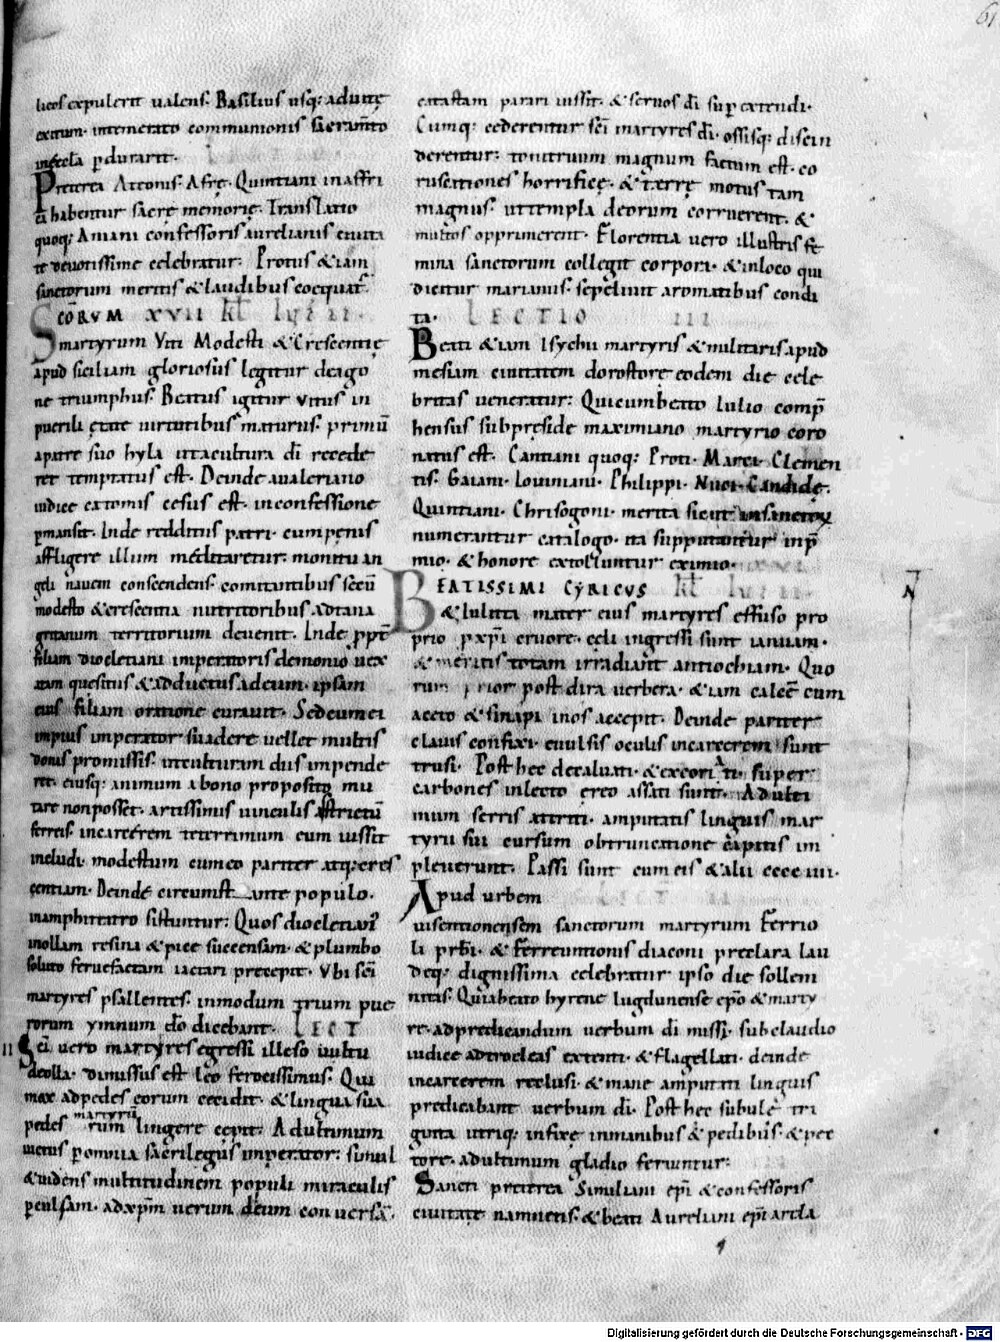 61
licos expulerit ualens. Basilius usq; ad uitę
exitum. intemerato communionis sacram̄to
in ęccl̄a ꝑdurarit.
Pręterea Attonis. Afrę. Quintiani in affri
ca habentur sacrę memorię. Translatio
quoq; Aniani confessoris aurelianis ciuita
te deuotissime celebratur. Protus &iam
sanctorum meritis & laudibus coequat̄.
SCŌRVM XVII kƚ Iulii.
martyrum Viti Modesti & Crescentię
apud siciliam gloriosus legitur de ago
ne triumphus. Beatus igitur vitus in
puerili ętate uirtutibus maturus. primū
a patre suo hyla ut a cultura dī recede
ret temptatus est. Deinde a ualeriano
iudice extomis cesus est. in confessione
ꝑmansit. Inde redditus patri. cum penis
affligere illum meditaretur. monitu an
geli nauem conscendens. comitantibus secū
modesto & crescentia nutritoribus ad tana
gritanum territorium deuenit. Inde ꝓpt̄
filium diocletiani imperatoris demonio uex
atum quesitus & adductus ad eum. ipsam
eius filiam oratione curauit. Sed cum ei
impius imperator suadere uellet multis
donis promissis. ut culturam diis impende
ret. eiusq; animum a bono proposito mu
tare non posset. artissimis uinculis strictū
ferreis. in carcerem teterrimum eum iussit
includi. modestum cum eo pariter atq; cres
centiam. Deinde circumst ante populo.
in amphiteatro sistuntur. Quos diocletian᷒
in ollam resina & pice succensam. & plumbo
soluto feruefactam iactari precepit. Vbi sc̄i
martyres psallentes. in modum trium pue
rorum ymnum dō dicebant. LECT
II Sc̄i uero martyres egressi illeso uultu
de olla. dimissus est leo ferocissimus. Qui
mox ad pedes eorum cecidit. & lingua sua
pedes martyrū rum lingere cepit. Ad ultimum
uictus ꝑ omnia sacrilegus imperator. simul
& uidens multitudinem populi miraculis
perulsam. ad xp̄m uerum deum conuersā.
catastam parari iussit. & seruos dī super extendi.
Cumq; cederentur sc̄i martyres dī. ossisq; discin
derentur. tonitruum magnum factum est. co
ruscationes horrificę. & terrę motus tam
magnus. ut templa deorum corruerent. &
multos opprimerent. Florentia uero illustris fe
mina sanctorum collegit corpora. & in loco qui
dicitur marianus. sepeliuit aromatibus condi
ta. LECTIO III
Beati &iam Isychii martyris & militaris apud
mesiam ciuitatem dorostore eodem die cele
britas ueneratur. Qui cum beato Iulio comp̄
hensus sub pręside maximiano martyrio coro
natus est. Cantiani quoq; Proti. Marci. Clemen
tis. Gaiani. Iouiniani. Philippi. Nuci. Candidę.
Quintiani. Chrisogoni. merita sicut in sanctoꝝ
numerantur catalogo. ita supputantur in p̄
mio. & honore extolluntur eximio.
BEATISSIMI CYRICVS kƚ Iulii.
& Iulitta mater eius martyres effuso pro
prio ꝑ xp̄i cruore. celi ingressi sunt ianuam.
& meritis totam irradiant antiochiam. Quo
rum prior post dira uerbera. &iam calcē cum
aceto & sinapi in os accepit. Deinde pariter
clauis confixi. euulsis oculis in carcerem sunt
trusi. Post hec decaluati. & excoriati. super
carbones in lecto ereo assati sunt. Ad ulti
mum serris attriti. amputatis linguis mar
tyrii sui cursum obtruncatione capitis im
pleuerunt. Passi sunt cum eis & alii cccc iiii.
Apud urbem
uisentionensem sanctorum martyrum Ferrio
li prb̄i. & ferreuntionis diaconi preclara lau
deq; dignissima celebratur ipso die sollem
nitas. Qui a beato hyrene lugdunense ep̄o & marty
re. ad predicandum uerbum dī missi. sub claudio
iudice ad trocleas extenti. & flagellati. deinde
in carcerem reclusi. & mane amputati linguis
predicabant uerbum dī. Post hec subule tri
ginta utriq; infixę in manibus & pedibus. & pec
tore. ad ultimum gladio feriuntur.
Sancti preterea Similiani ep̄i & confessoris
ciuitate namnetis. & beati Aureliani ep̄i arela
Digitalisierung gefördert durch die Deutsche Forschungsgemeinschaft - DFG